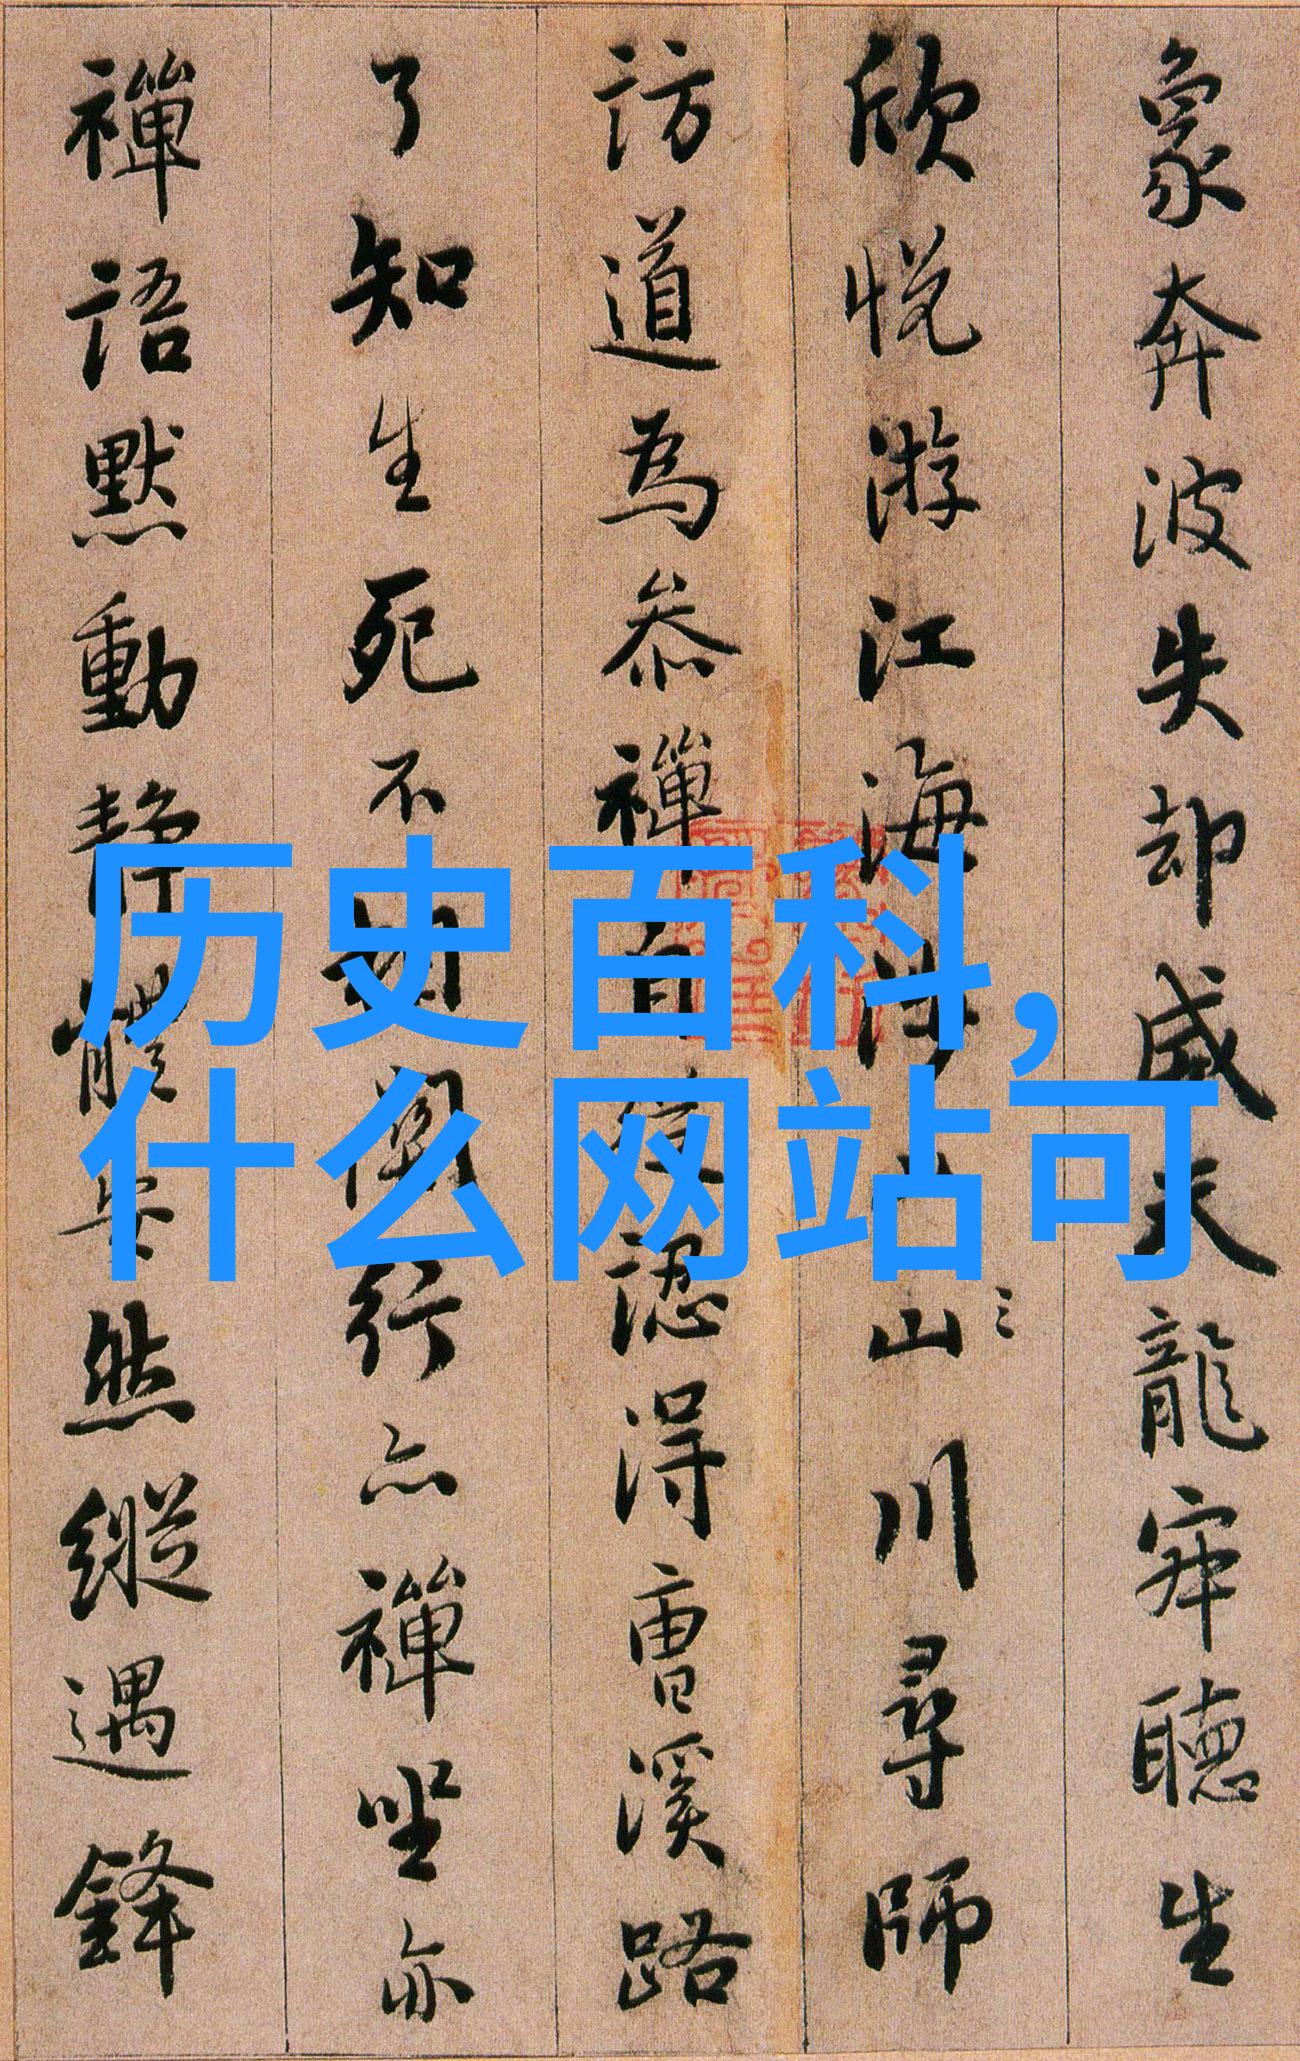 象奔波失却威天龍寂聽生
欣悅游江海涉山山川尋師
訪道為参禪自從認得曹溪路
了知生死不相關行亦禪坐亦
禪語默動静體安然縱遇鋒
历史百科,
什么网站可